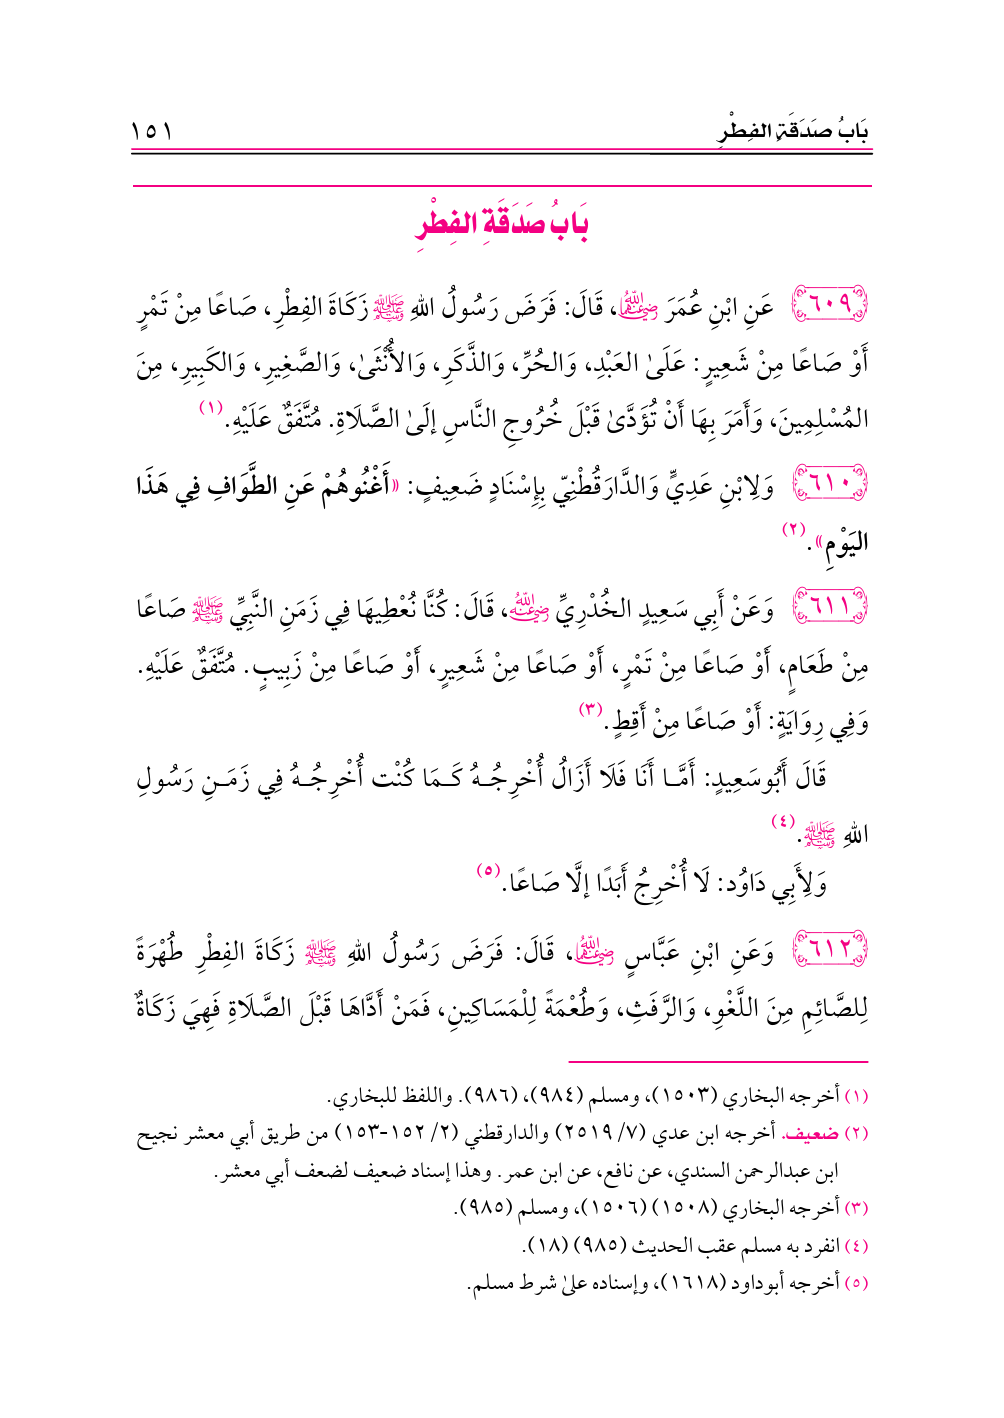 بَابُ صَدَقَةِ الفِطْرِ ١٥١
بَابُ صَدَقَةِ الفِطْرِ
٦٠٩ عَنِ ابْنِ عُمَرَ رضي الله عنهما، قَالَ: فَرَضَ رَسُولُ اللهِ ﷺ زَكَاةَ الفِطْرِ، صَاعًا مِنْ تَمْرٍ
أَوْ صَاعًا مِنْ شَعِيرٍ: عَلَىٰ العَبْدِ، وَالحُرِّ، وَالذَّكَرِ، وَالأُنْثَىٰ، وَالصَّغِيرِ، وَالكَبِيرِ، مِنَ
المُسْلِمِينَ، وَأَمَرَ بِهَا أَنْ تُؤَدَّىٰ قَبْلَ خُرُوجِ النَّاسِ إلَىٰ الصَّلَاةِ. مُتَّفَقٌ عَلَيْهِ.(١)
٦١٠ وَلِابْنِ عَدِيٍّ وَالدَّارَقُطْنِيّ بِإِسْنَادٍ ضَعِيفٍ: «أَغْنُوهُمْ عَنِ الطَّوَافِ فِي هَذَا
اليَوْمِ».(٢)
٦١١ وَعَنْ أَبِي سَعِيدٍ الخُدْرِيِّ رضي الله عنه، قَالَ: كُنَّا نُعْطِيهَا فِي زَمَنِ النَّبِيِّ ﷺ صَاعًا
مِنْ طَعَامٍ، أَوْ صَاعًا مِنْ تَمْرٍ، أَوْ صَاعًا مِنْ شَعِيرٍ، أَوْ صَاعًا مِنْ زَبِيبٍ. مُتَّفَقٌ عَلَيْهِ.
وَفِي رِوَايَةٍ: أَوْ صَاعًا مِنْ أَقِطٍ.(٣)
قَالَ أَبُوسَعِيدٍ: أَمَّـا أَنَا فَلَا أَزَالُ أُخْرِجُـهُ كَـمَا كُنْت أُخْرِجُـهُ فِي زَمَـنِ رَسُولِ
اللهِ ﷺ.(٤)
وَلِأَبِي دَاوُد: لَا أُخْرِجُ أَبَدًا إلَّا صَاعًا.(٥)
٦١٢ وَعَنِ ابْنِ عَبَّاسٍ رضي الله عنهما، قَالَ: فَرَضَ رَسُولُ اللهِ ﷺ زَكَاةَ الفِطْرِ طُهْرَةً
لِلصَّائِمِ مِنَ اللَّغْوِ، وَالرَّفَثِ، وَطُعْمَةً لِلْمَسَاكِينِ، فَمَنْ أَدَّاهَا قَبْلَ الصَّلَاةِ فَهِيَ زَكَاةٌ
(١) أخرجه البخاري (١٥٠٣)، ومسلم (٩٨٤)، (٩٨٦). واللفظ للبخاري.
(٢) ضعيف. أخرجه ابن عدي (٧/ ٢٥١٩) والدارقطني (٢/ ١٥٢-١٥٣) من طريق أبي معشر نجيح
ابن عبدالرحمن السندي، عن نافع، عن ابن عمر. وهذا إسناد ضعيف لضعف أبي معشر.
(٣) أخرجه البخاري (١٥٠٨) (١٥٠٦)، ومسلم (٩٨٥).
(٤) انفرد به مسلم عقب الحديث (٩٨٥) (١٨).
(٥) أخرجه أبوداود (١٦١٨)، وإسناده علىٰ شرط مسلم.